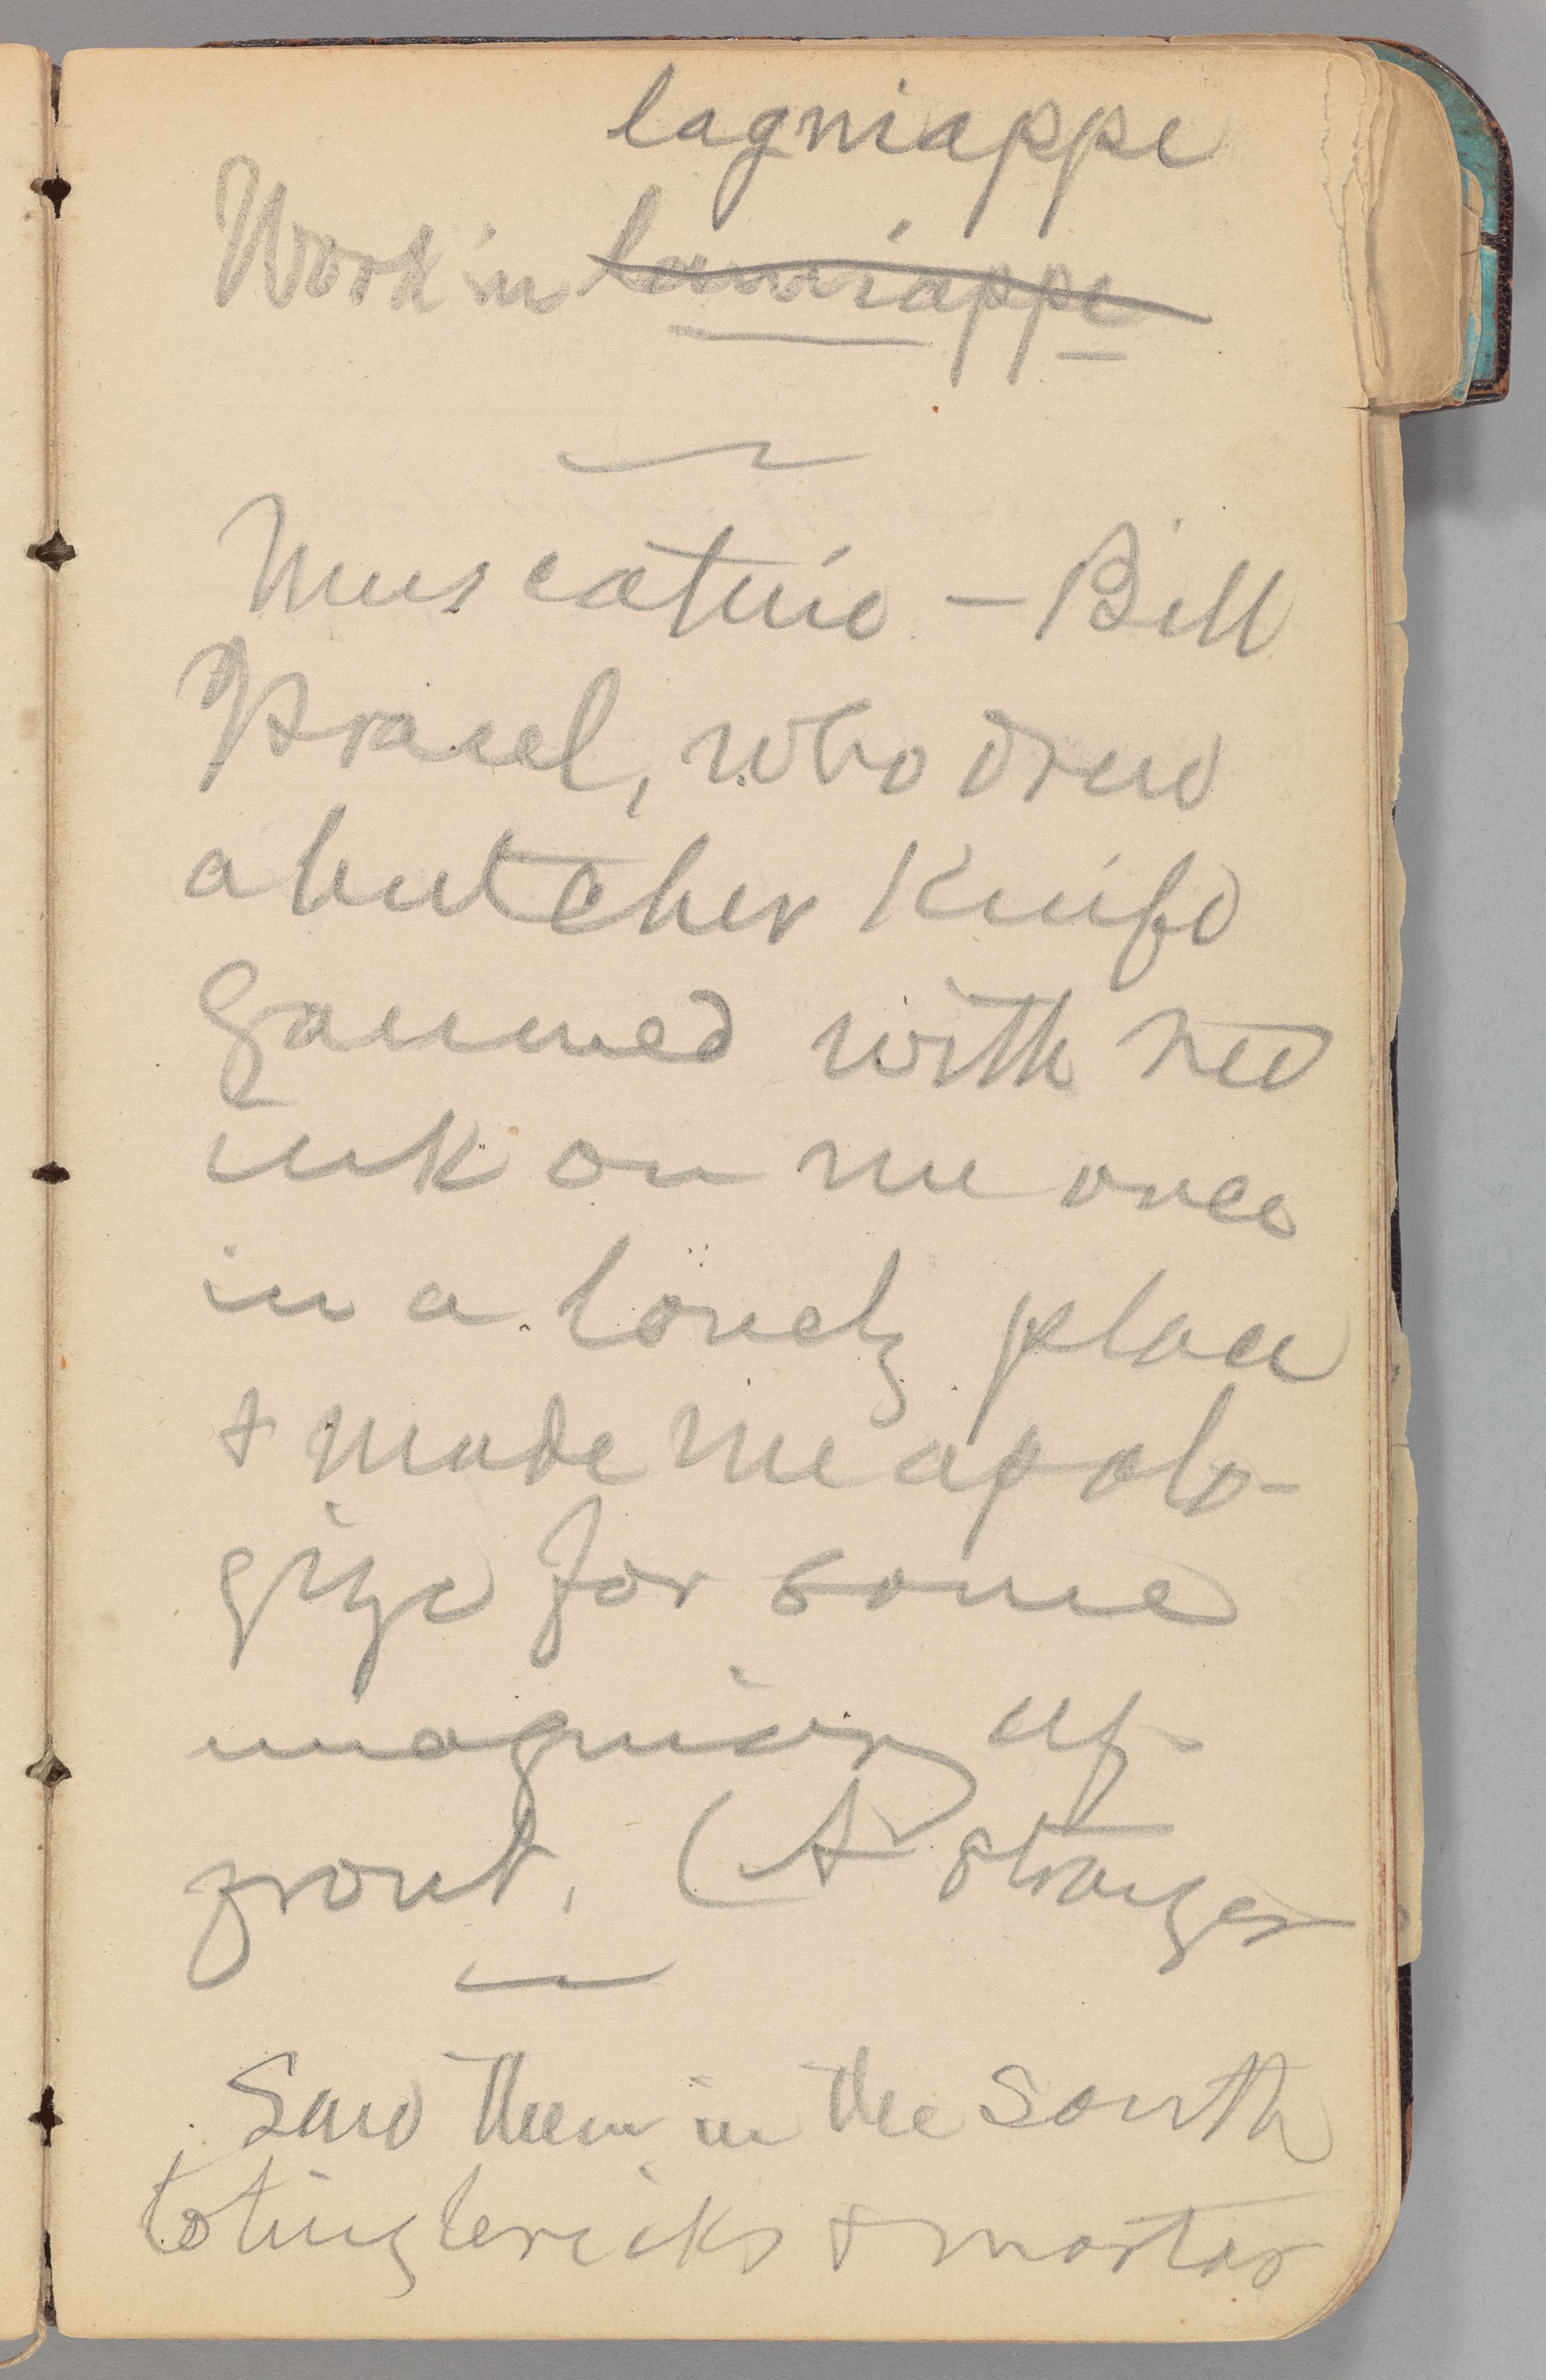 lagniappe
Work in lanniappe
Muscatine — Bill
Israel, who drew
a butcher knife
gaumed with red
ink on me once
in a lonely place
+ made me apolo-
gize for some
imaginary af-
front. (A stranger
Saw them in the South
toting bricks + mortar